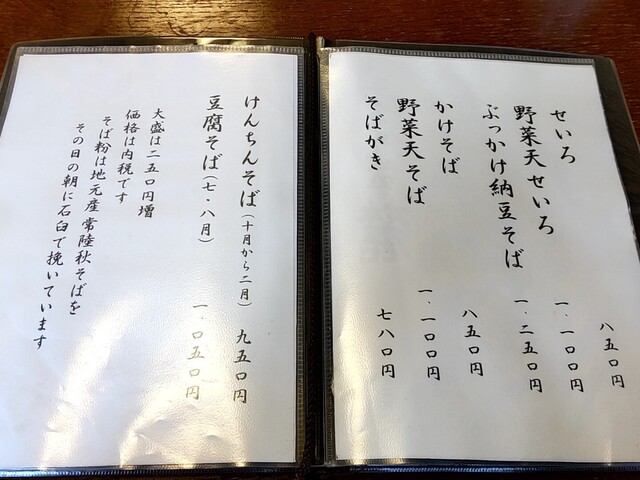 せいろ 八五〇円
野菜天せいろ 一、一〇〇円
ぶっかけ納豆そば 一、二五〇円
かけそば 八五〇円
野菜天そば 一、一〇〇円
そばがき 七八〇円
けんちんそば(十月から二月) 九五〇円
豆腐そば(七・八月) 一、〇五〇円
大盛は二五〇円増
価格は内税です
そば粉は地元産常陸秋そばを
その日の朝に石臼で挽いています